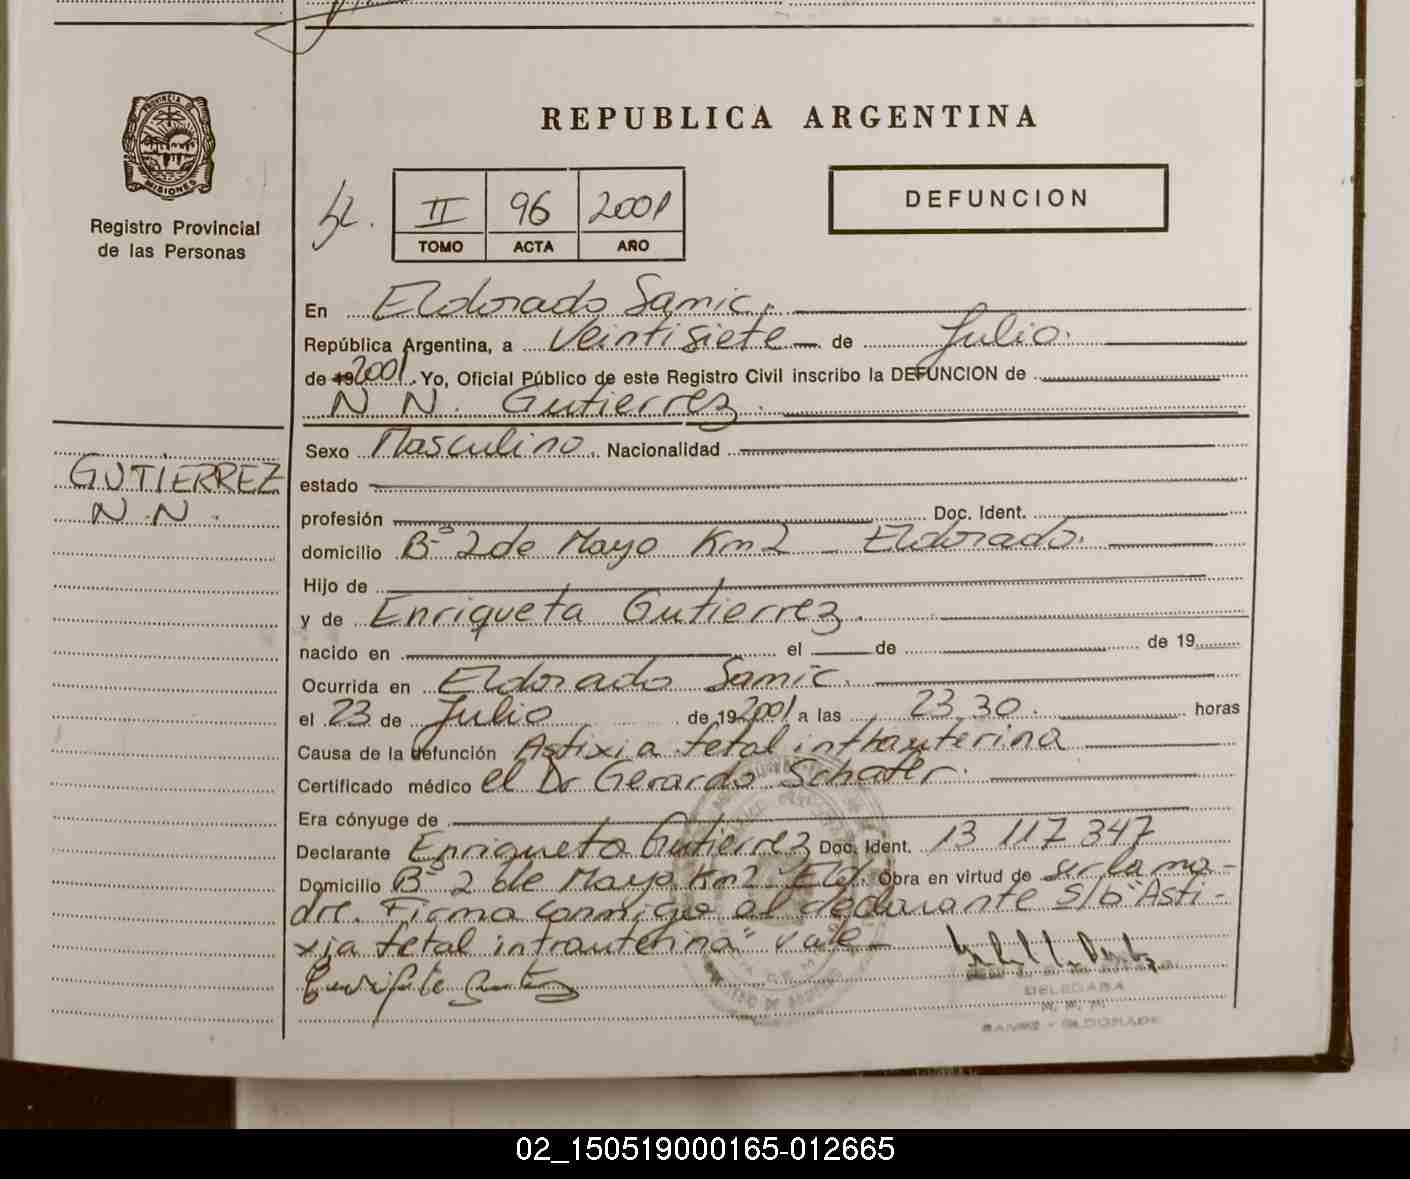 REPUBLICA ARGENTINA
PROVINCIA DE
MISIONES
Registro Provincial
de las Personas
II 96 2001
TOMO ACTA AÑO
DEFUNCION
En Eldorado Samic.
República Argentina, a Veintisiete de Julio.
de 19 2001. Yo, Oficial Público de este Registro Civil inscribo la DEFUNCION de
N N. Gutierrez.
GUTIERREZ
N.N.
Sexo Masculino. Nacionalidad
estado
profesión Doc. Ident.
domicilio Bº 2 de Mayo Km 2 - Eldorado.
Hijo de
y de Enriqueta Gutierrez.
nacido en el de de 19
Ocurrida en Eldorado Samic.
el 23 de Julio de 19 2001 a las 23,30. horas
Causa de la defunción Asfixia fetal intrauterina
Certificado médico el Dr Gerardo Schafer.
Era cónyuge de
Declarante Enriqueta Gutierrez Doc. Ident. 13 117 347
Domicilio Bº 2 de Mayo Km 2 Eld. Obra en virtud de ser la ma-
dre. Firma conmigo el declarante S/b "Asfi-
xia fetal intrauterina" vale
DELEGADA
SAMIC - ELDORADO
02_150519000165-012665